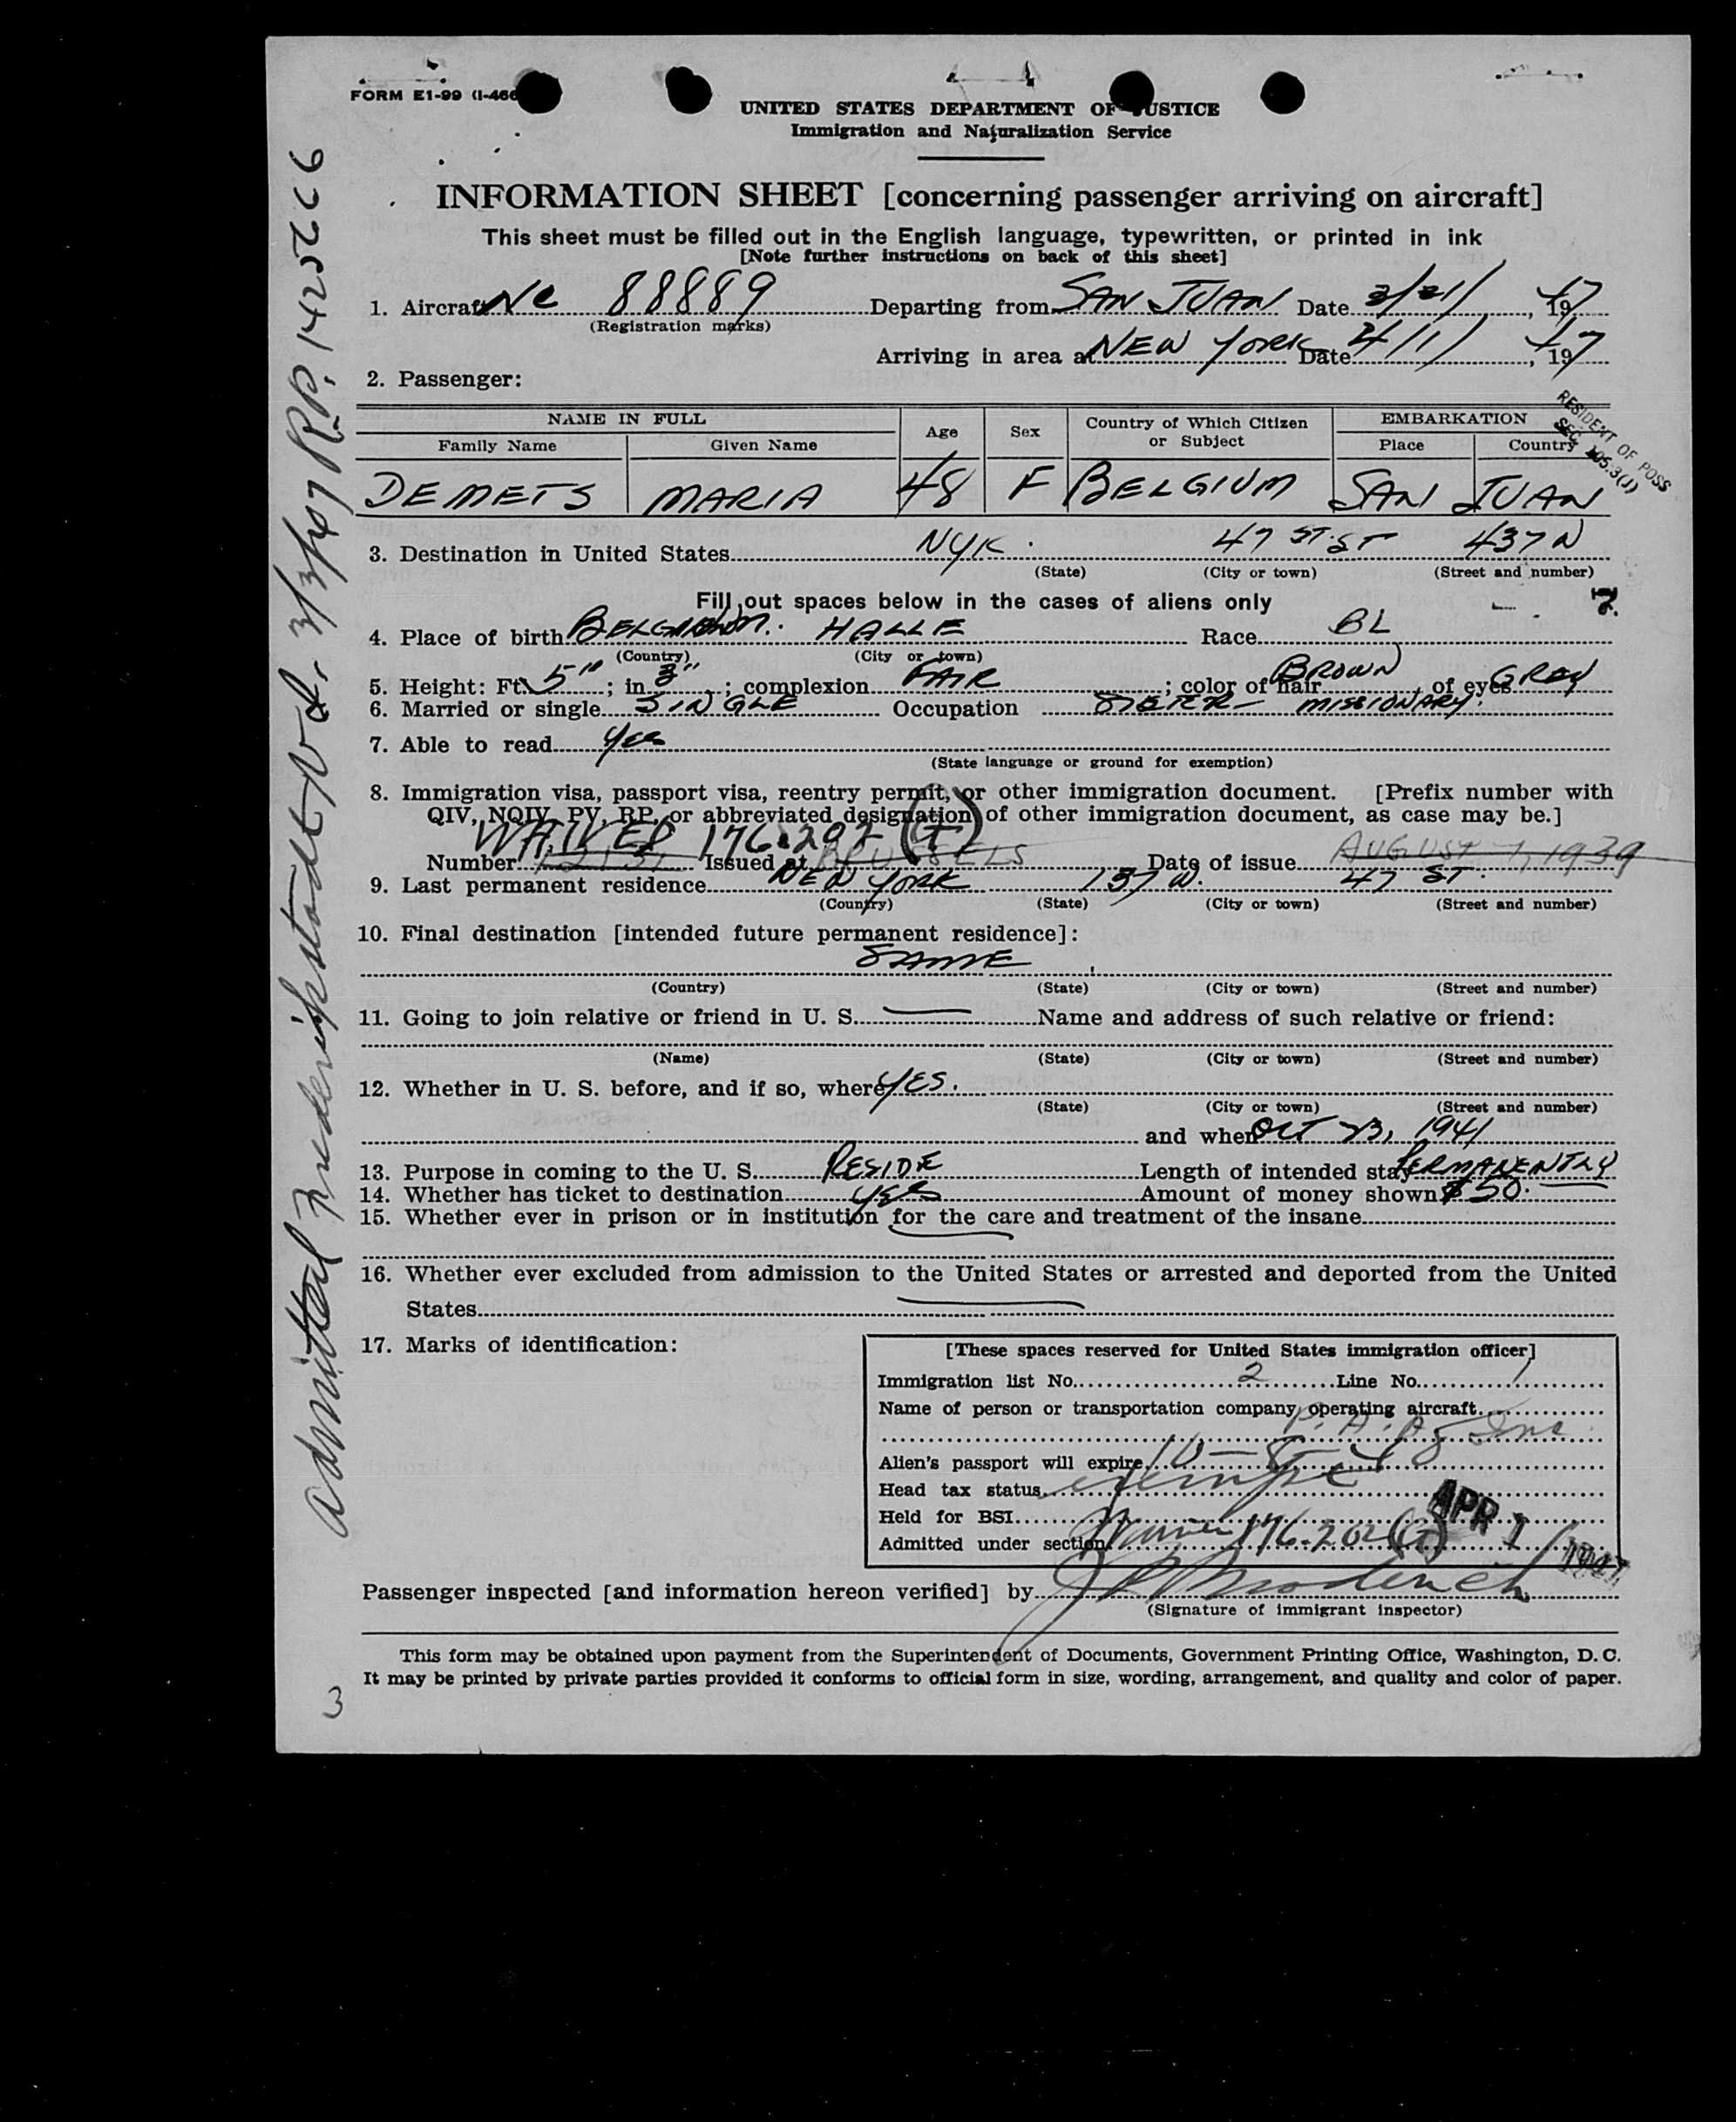 FORM E1-99 (I-466
UNITED STATES DEPARTMENT OF JUSTICE
Immigration and Naturalization Service
INFORMATION SHEET [concerning passenger arriving on aircraft]
This sheet must be filled out in the English language, typewritten, or printed in ink
[Note further instructions on back of this sheet]
1. Aircraft NC 88889 Departing from SAN JUAN Date 3/31/, 1947
(Registration marks)
Arriving in area at NEW YORK Date 4/1/, 1947
2. Passenger:
NAME IN FULL Age Sex Country of Which Citizen or Subject EMBARKATION
Family Name Given Name Place Country
RESIDENT OF POSS
SEC. 105.3(1)
DEMETS MARIA 48 F BELGIUM SAN JUAN
3. Destination in United States NYK. 47 ST. ST 437 W
(State) (City or town) (Street and number)
Fill out spaces below in the cases of aliens only
4. Place of birth BELGIUM. HALLE Race BL
(Country) (City or town)
5. Height: Ft. 5"; in 3"; complexion FAIR; color of hair BROWN, of eyes GREY
6. Married or single SINGLE Occupation MISSIONARY.
7. Able to read Yes
(State language or ground for exemption)
8. Immigration visa, passport visa, reentry permit, or other immigration document. [Prefix number with
QIV, NQIV, PV, RP, or abbreviated designation of other immigration document, as case may be.]
WAIVED 176.202
Number Issued at BRUSSELS Date of issue AUGUST 1, 1939
9. Last permanent residence NEW YORK 137 W. 47 ST.
(Country) (State) (City or town) (Street and number)
10. Final destination [intended future permanent residence]:
SAME
(Country) (State) (City or town) (Street and number)
11. Going to join relative or friend in U. S. Name and address of such relative or friend:
(Name) (State) (City or town) (Street and number)
12. Whether in U. S. before, and if so, where YES.
(State) (City or town) (Street and number)
and when OCT 23, 1941
13. Purpose in coming to the U. S. RESIDE Length of intended stay PERMANENTLY
14. Whether has ticket to destination yes Amount of money shown $ 50.
15. Whether ever in prison or in institution for the care and treatment of the insane
16. Whether ever excluded from admission to the United States or arrested and deported from the United
States
17. Marks of identification:
[These spaces reserved for United States immigration officer]
Immigration list No. 2 Line No. 1
Name of person or transportation company operating aircraft
P. A. A. Inc
Alien's passport will expire
Head tax status exempt
Held for BSI
APR 1 1947
Admitted under section Waiver 176.202(G)
Passenger inspected [and information hereon verified] by
(Signature of immigrant inspector)
This form may be obtained upon payment from the Superintendent of Documents, Government Printing Office, Washington, D. C.
It may be printed by private parties provided it conforms to official form in size, wording, arrangement, and quality and color of paper.
Admitted Frederiksted V.I. 3/3/47 R.P. 1425666
3